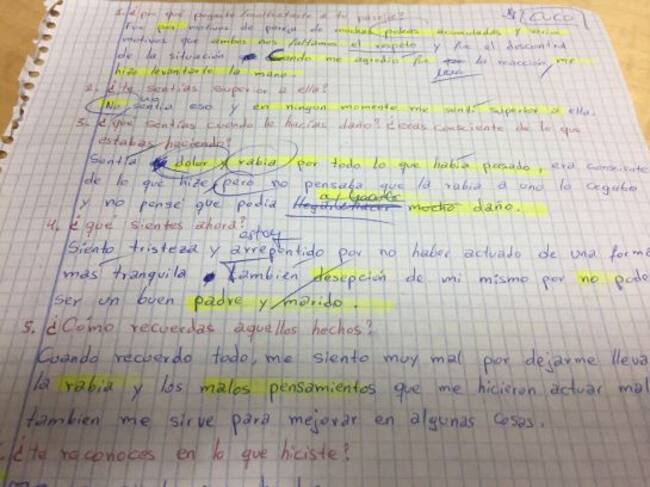 1. ¿Por qué pegaste/maltrataste a tu pareja? CUCO
Fue por motivos de pareja de muchas peleas acumuladas y varios
motivos que ambos nos faltamos el respeto y fue el descontrol
de la situación Cuando me agredio fue la reacción, me
hizo levantarle la mano.
2. ¿Te sentías superior a ella?
No sentia eso y en ningun momento me sentí superior a ella.
3. ¿Qué sentías cuando le hacías daño? ¿eras consciente de lo que
estabas haciendo?
Sentía dolor y rabia por todo lo que había pasado, era consciente
de lo que hize, pero no pensaba que la rabia a uno lo cegaba
y no pensé que podia mucho daño.
4. ¿que sientes ahora? estoy
Siento tristeza y arrepentido por no haber actuado de una forma
mas tranquila tambien desepción de mi mismo por no pode
ser un buen padre y marido.
5. ¿Cómo recuerdas aquellos hechos?
Cuando recuerdo todo, me siento muy mal por dejarme lleva
la rabia y los malos pensamientos que me hicieron actuar mal
tambien me sirve para mejorar en algunas cosas.
¿te reconoces en lo que hiciste?